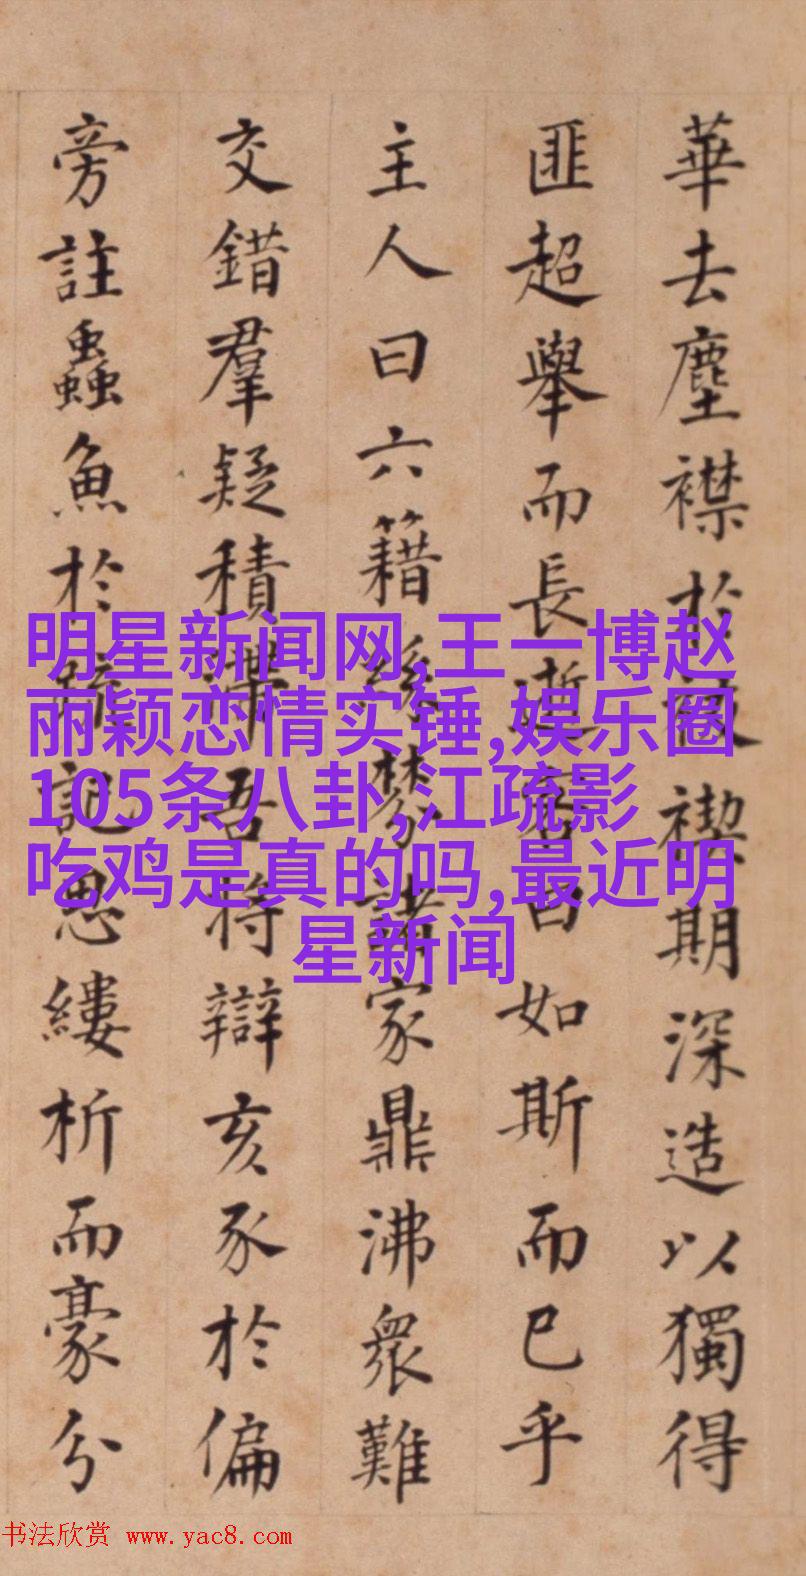 華去塵襟於被禊期深造以獨得
匪超舉而長遊客曰如斯而已乎
主人曰六籍紛棼諸家鼎沸衆難
交錯羣疑積滯吾将辯亥豕於偏
旁註蟲魚於疏記思縷析而豪分
明星新闻网,王一博赵
丽颖恋情实锤,娱乐圈
105条八卦,江疏影
吃鸡是真的吗,最近明
星新闻
书法欣赏 www.yac8.com